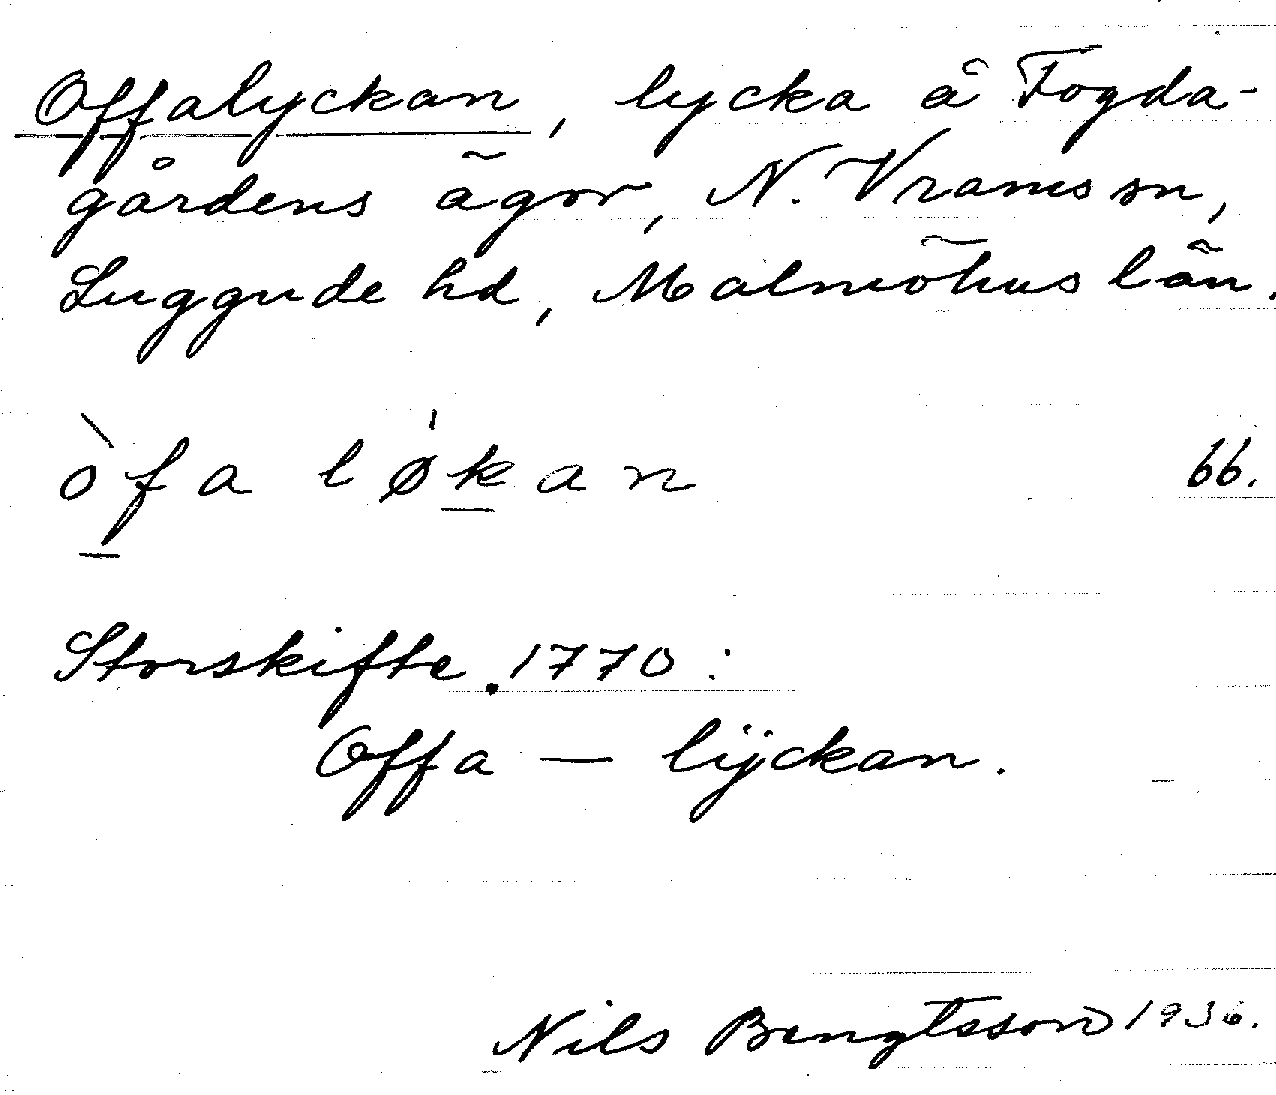 Offalyckan, lycka å Fogda-
gårdens ägor, N. Vrams sn,
Luggude hd, Malmöhus län.
òfa løkan 66.
Storskifte 1770:
Offa — lÿckan.
Nils Bengtsson 1936.